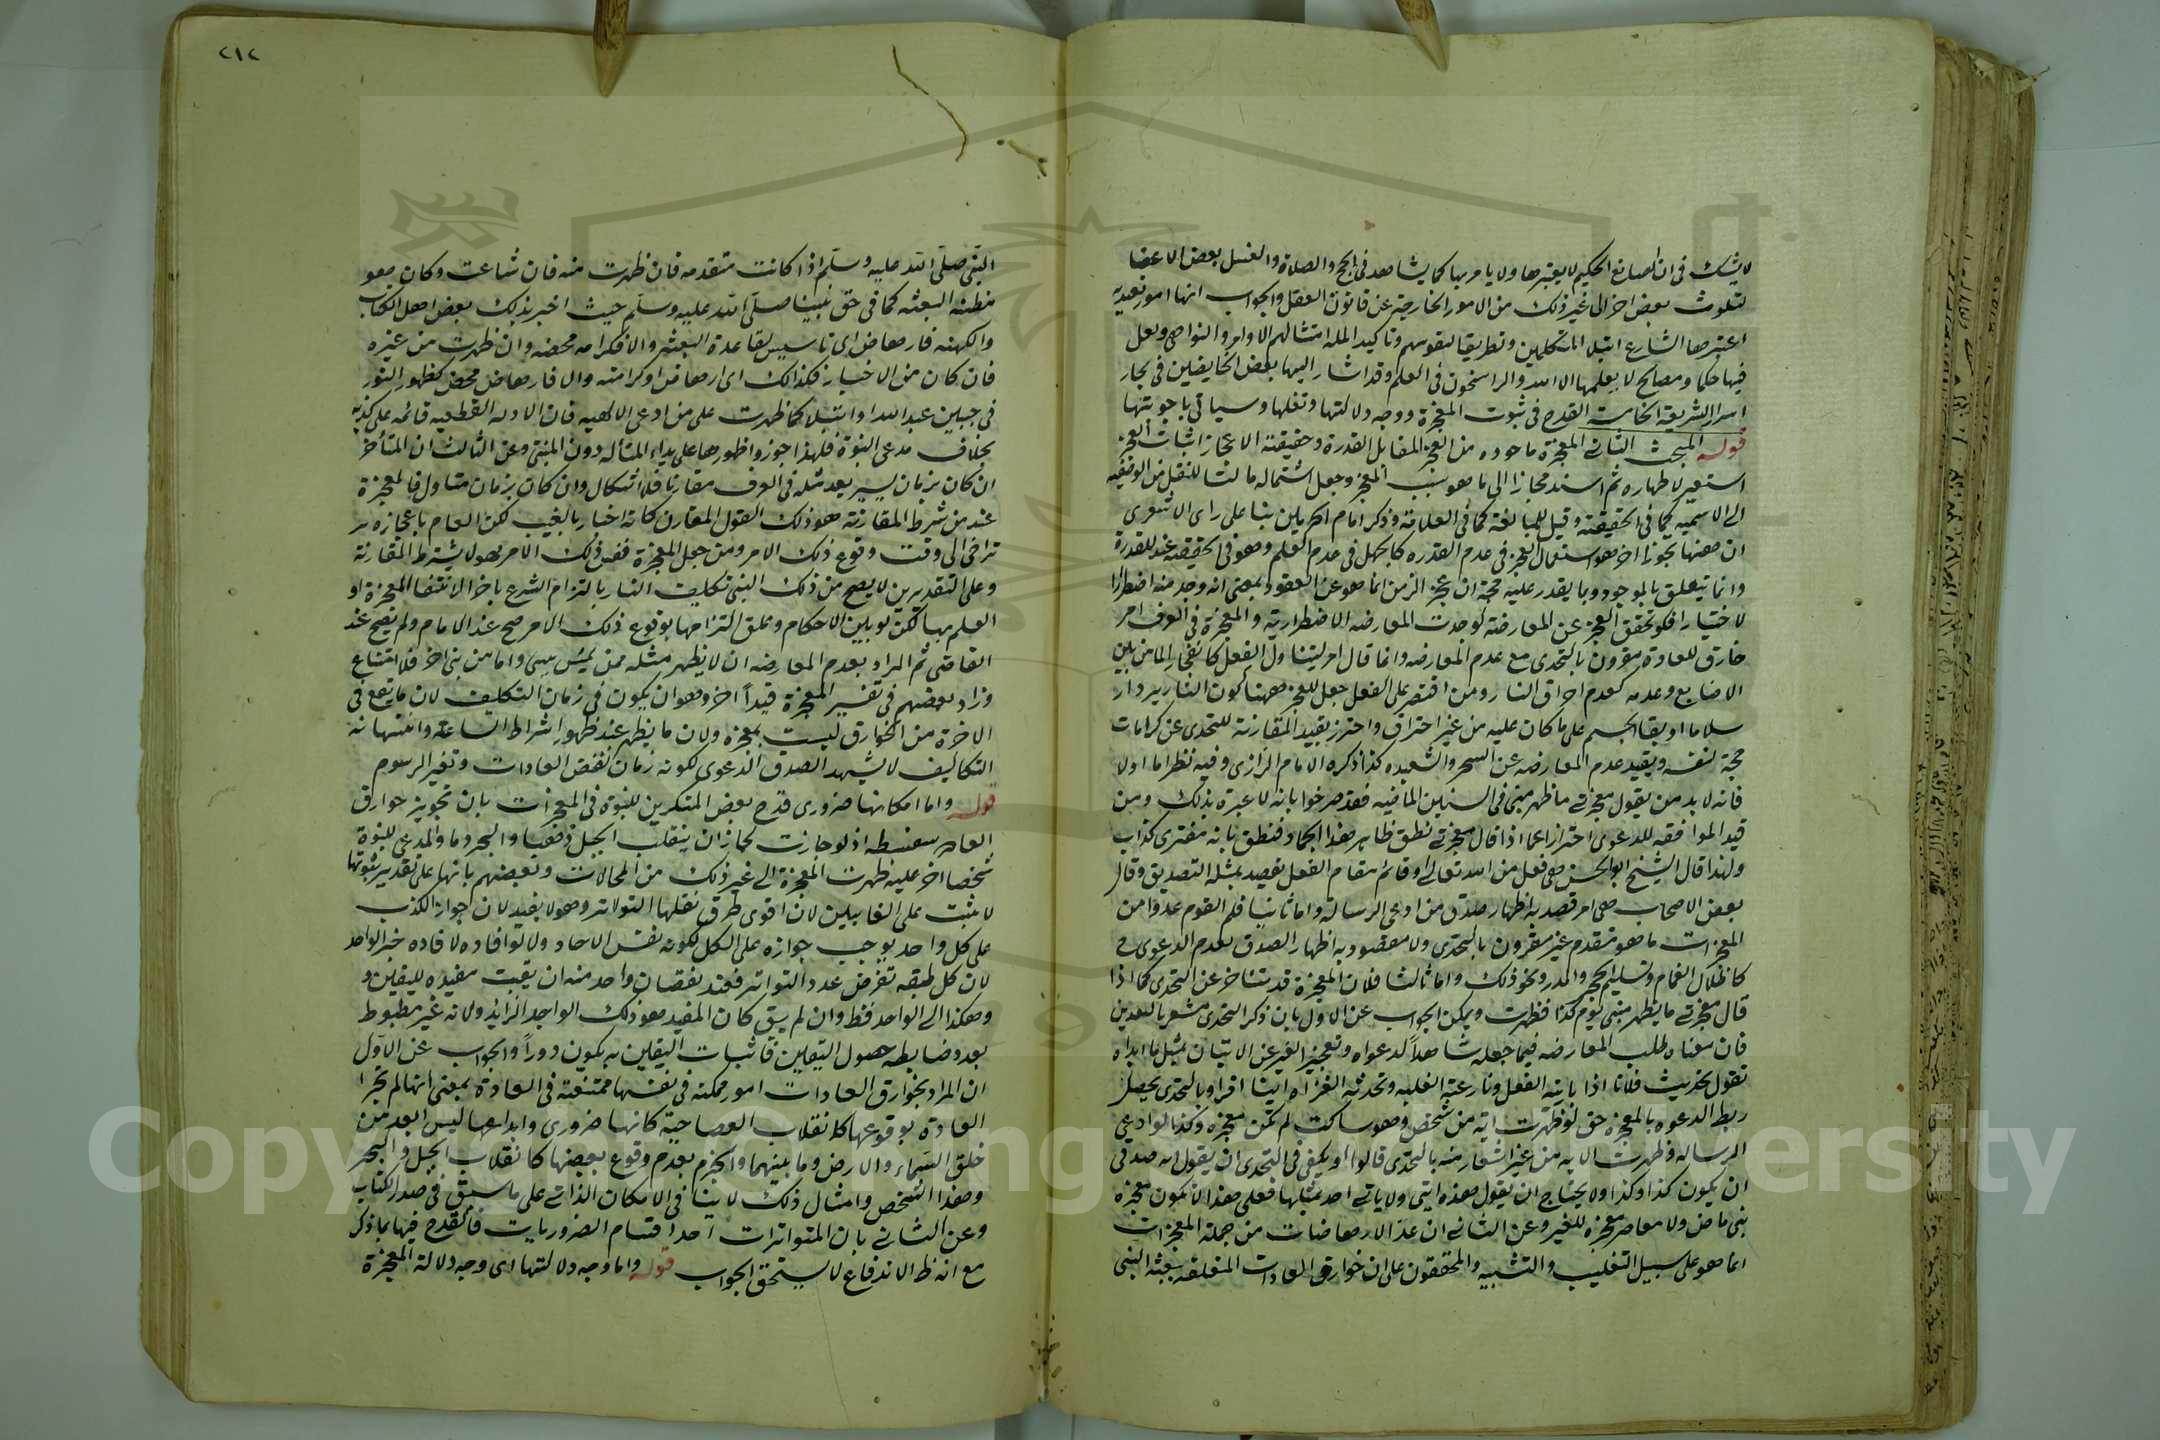 لا يشك في ان الصانع الحكيم لا يعتبرها ولا يامر بها كما يشاهد في الحج والصلاة والغسل بعض الاعضا
لتلوث بعض اخر الى غير ذلك من الامور الخارجة عن قانون العقل والجواب انها امور تعبدية
اعتبرها الشارع ابتلا للمكلفين وتطريقا لنفوسهم وتاكيدا لملكة امتثالهم الاوامر والنواهي ولعل
فيها حكما ومصالح لا يعلمها الا الله والراسخون في العلم وقد اشار اليها بعض الخايضين في بحار
اسرار الشريعة الخامسة القدح في ثبوت المعجزة ووجه دلالتها ونقلها وسياتي باجوبتها
قوله المبحث الثاني المعجزة ماخوذة من العجز المقابل القدرة وحقيقة الاعجاز اثبات العجز
استعير لاظهاره ثم اسند مجازا الى ما هو سبب العجز وجعل اسما له فالتا للنقل من الوصفية
الى الاسمية كما في الحقيقة وقيل للمبالغة كما في العلامة وذكر امام الحرمين بنا على راى الاشعرى
ان ههنا تجوزا اخر هو استعمال العجز في عدم القدرة كالجهل في عدم العلم وهو في الحقيقة ضد للقدرة
وانما يتعلق بالموجود وبما يقدر عليه حتى ان عجز الزمن انما هو عن القعود بمعنى انه وجد منه اضطرارا
لا اختيارا فلو تحقق العجز عن المعارضة لوجدت المعارضه الاضطرارية والمعجزة في العرف امر
خارق للعادة مقرون بالتحدى مع عدم المعارضه وانما قال امر ليتناول الفعل كانفجار الما من بين
الاصابع وعدمه كعدم احراق النار ومن اقتصر على الفعل جعل المعجز ههنا كون النار بردا و
سلاما او بقا الجسم على ما كان عليه من غير احتراق واحترز بقيد المقارنة للتحدى عن كرامات
حجة لنفسه وبقيد عدم المعارضه عن السحر والشعبده كذا ذكره الامام الرازى وفيه نظر اما اولا
فانه لا بد من يقول معجزتي ما ظهر مني في السنين الماضيه فقد صرحوا بانه لا عبرة بذلك ومن
قيد الموافقه للدعوى احترازا عما اذا قال معجزتي نطق هذا الجماد فنطق بانه مفترى كذاب
ولهذا قال الشيخ ابو الحسن هي فعل من الله تعالى او قائم مقام الفعل يقصد بمثله التصديق وقال
بعض الاصحاب هي امر قصد به اظهار صدق من ادعى الرسالة واما ثانيا فلم القوم عدوا من
المعجزات ما هو متقدم غير مقرون بالتحدى ولا مقصود به اظهار الصدق لعدم الدعوى ح
كاظلال الغمام وتسليم الحجر والمدر ونحو ذلك واما ثالثا فلان المعجزة قد تتاخر عن التحدى كما اذا
قال معجزتي ما يظهر مني يوم كذا فظهرت ويمكن الجواب عن الاول بان ذكر التحدى مشعر بالقيدين
فان معناه طلب المعارضه فيما جعله شاهدا لدعواه وتعجيز الغير عن الاتيان بمثل ما ابداه
تقول تحديت فلانا اذا باريته الفعل ونازعته الغلبه وبالتحدى يحصل
ربط الدعوه بالمعجزة حتى لو ظهرت اية من شخص وهو ساكت لم تكن معجزه وكذا لو ادعى
الرساله فظهرت الايه من غير اشعار منه بالتحدى قالوا او يكفي في التحدى ان يقول اية صدقي
ان يكون كذا وكذا ولا يحتاج ان يقول هذه ايتي ولا ياتي احد بمثلها فعلى هذا لا تكون معجزه
نبى ماض ولا معاصر معجزة للغير وعن الثاني ان عد الارهاصات من جملة المعجزات
انما هو على سبيل التغليب والتشبيه والمحققون على ان خوارق العادات المتعلقه ببعثة النبي
٢١٢
النبي صلى الله عليه وسلم اذا كانت متقدمه فان ظهرت منه فان شاعت وكان هو
مظنة البعثه كما في حق نبينا صلى الله عليه وسلم حيث اخبر بذلك بعض اهل الكتاب
والكهنه فارهاض اى تاسيس لقاعدة البعثه والا فكرامه محضه وان ظهرت من غيره
فان كان من الاخيار فكذلك اى ارهاض او كرامته والا فارهاض محض كظهور النور
في جبين عبد الله او ابتلا كما ظهرت على من ادعى الالهيه فان الادلة القطعيه قائمه على كذبه
بخلاف مدعى النبوة فلهذا جوزوا ظهورها على يد المتاله دون المتنبى وعن الثالث ان المتأخر
ان كان بزمان يسير يعد مثله في العرف مقارنا فلا اشكال وان كان بزمان متطاول فالمعجزة
عند من شرط المقارنة هو ذلك القول المقارن كانه اخبار بالغيب لكن العلم باعجازه
تراخى الى وقت وقوع ذلك الامر ومن جعل المعجزة نفس ذلك الامر فهو لا يشترط المقارنة
وعلى التقديرين لا يصح من ذلك النبي تكليف الناس بالتزام الشرع ناجزا لانتفا المعجزة او
العلم بها لكن لو بين الاحكام وعلق التزامها بوقوع ذلك الامر صح عند الامام ولم يصح عند
القاضي ثم المراد بعدم المعارضه ان لا يظهر مثله ممن ليس بنبي واما من نبي اخر فلا امتناع
وزاد بعضهم في تفسير المعجزة قيدا اخر وهو ان يكون في زمان التكليف لان ما يقع في
الاخرة من الخوارق ليست بمعجزة ولان ما يظهر عند ظهور اشراط الساعة وانتها
التكاليف لا يشهد الصدق الدعوى لكونه زمان نقض العادات وتغير الرسوم
قوله واما امكانها ضرورى قدح بعض المنكرين للنبوة في المعجزات بان تجويز خوارق
العادة سفسطه اذ لو جازت لجاز ان ينقلب الجبل ذهبا والبحر دما والمدعى للنبوة
شخصا اخر عليه ظهرت المعجزة الى غير ذلك من المحالات وبعضهم بانها على تقدير ثبوتها
لا تثبت على الغايبين لان اقوى طرق نقلها التواتر وهو لا يفيد لان جواز الكذب
على كل واحد يوجب جوازه على الكل لكونه نفس الاحاد ولانه لو افاده لافاده خبر الواحد
لان كل طبقه تفرض عدد التواتر فعند نقصان واحد منه ان بقيت مفيده لليقين و
وهكذا الى الواحد فظ وان لم يبق كان المفيد هو ذلك الواحد الزائد ولانه غير مضبوط
بعدد ضابطه حصول اليقين فاثبات اليقين به يكون دورا والجواب عن الاول
ان المراد بخوارق العادات امور ممكنه في نفسها ممتنعة في العادة بمعنى انها لم تجر
العادة بوقوعها كانقلاب العصا حية فامكانها ضرورى وابداعها ليس ابعد من
خلق السماء والارض وما بينهما والجزم بعدم وقوع بعضها كانقلاب الجبل والبحر
وهذا الشخص وامثال ذلك لا ينافي الامكان الذاتي على ما سبق في صدر الكتاب
وعن الثاني بان المتواترات احد اقسام الضروريات فالقدح فيها بما ذكر
مع انه ظ الاندفاع لا يستحق الجواب قوله واما وجه دلالتها اى وجه دلالة المعجزة